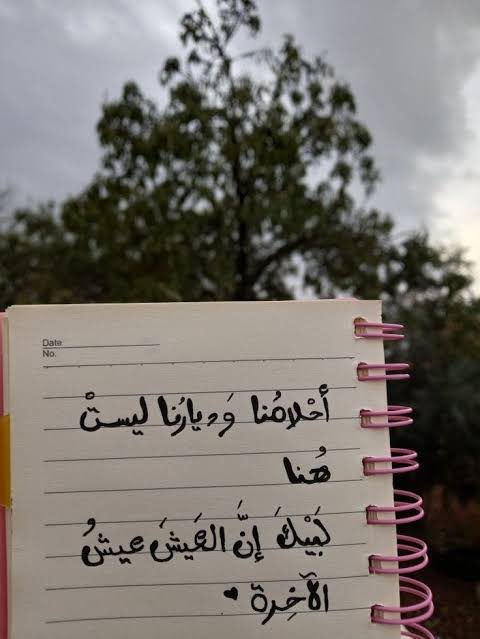 Date
No.
أحْلامُنا وَديارُنا ليستْ
هُنا
لَبَيْكَ إنَّ العَيشَ عيشُ
الآخِرة ♥